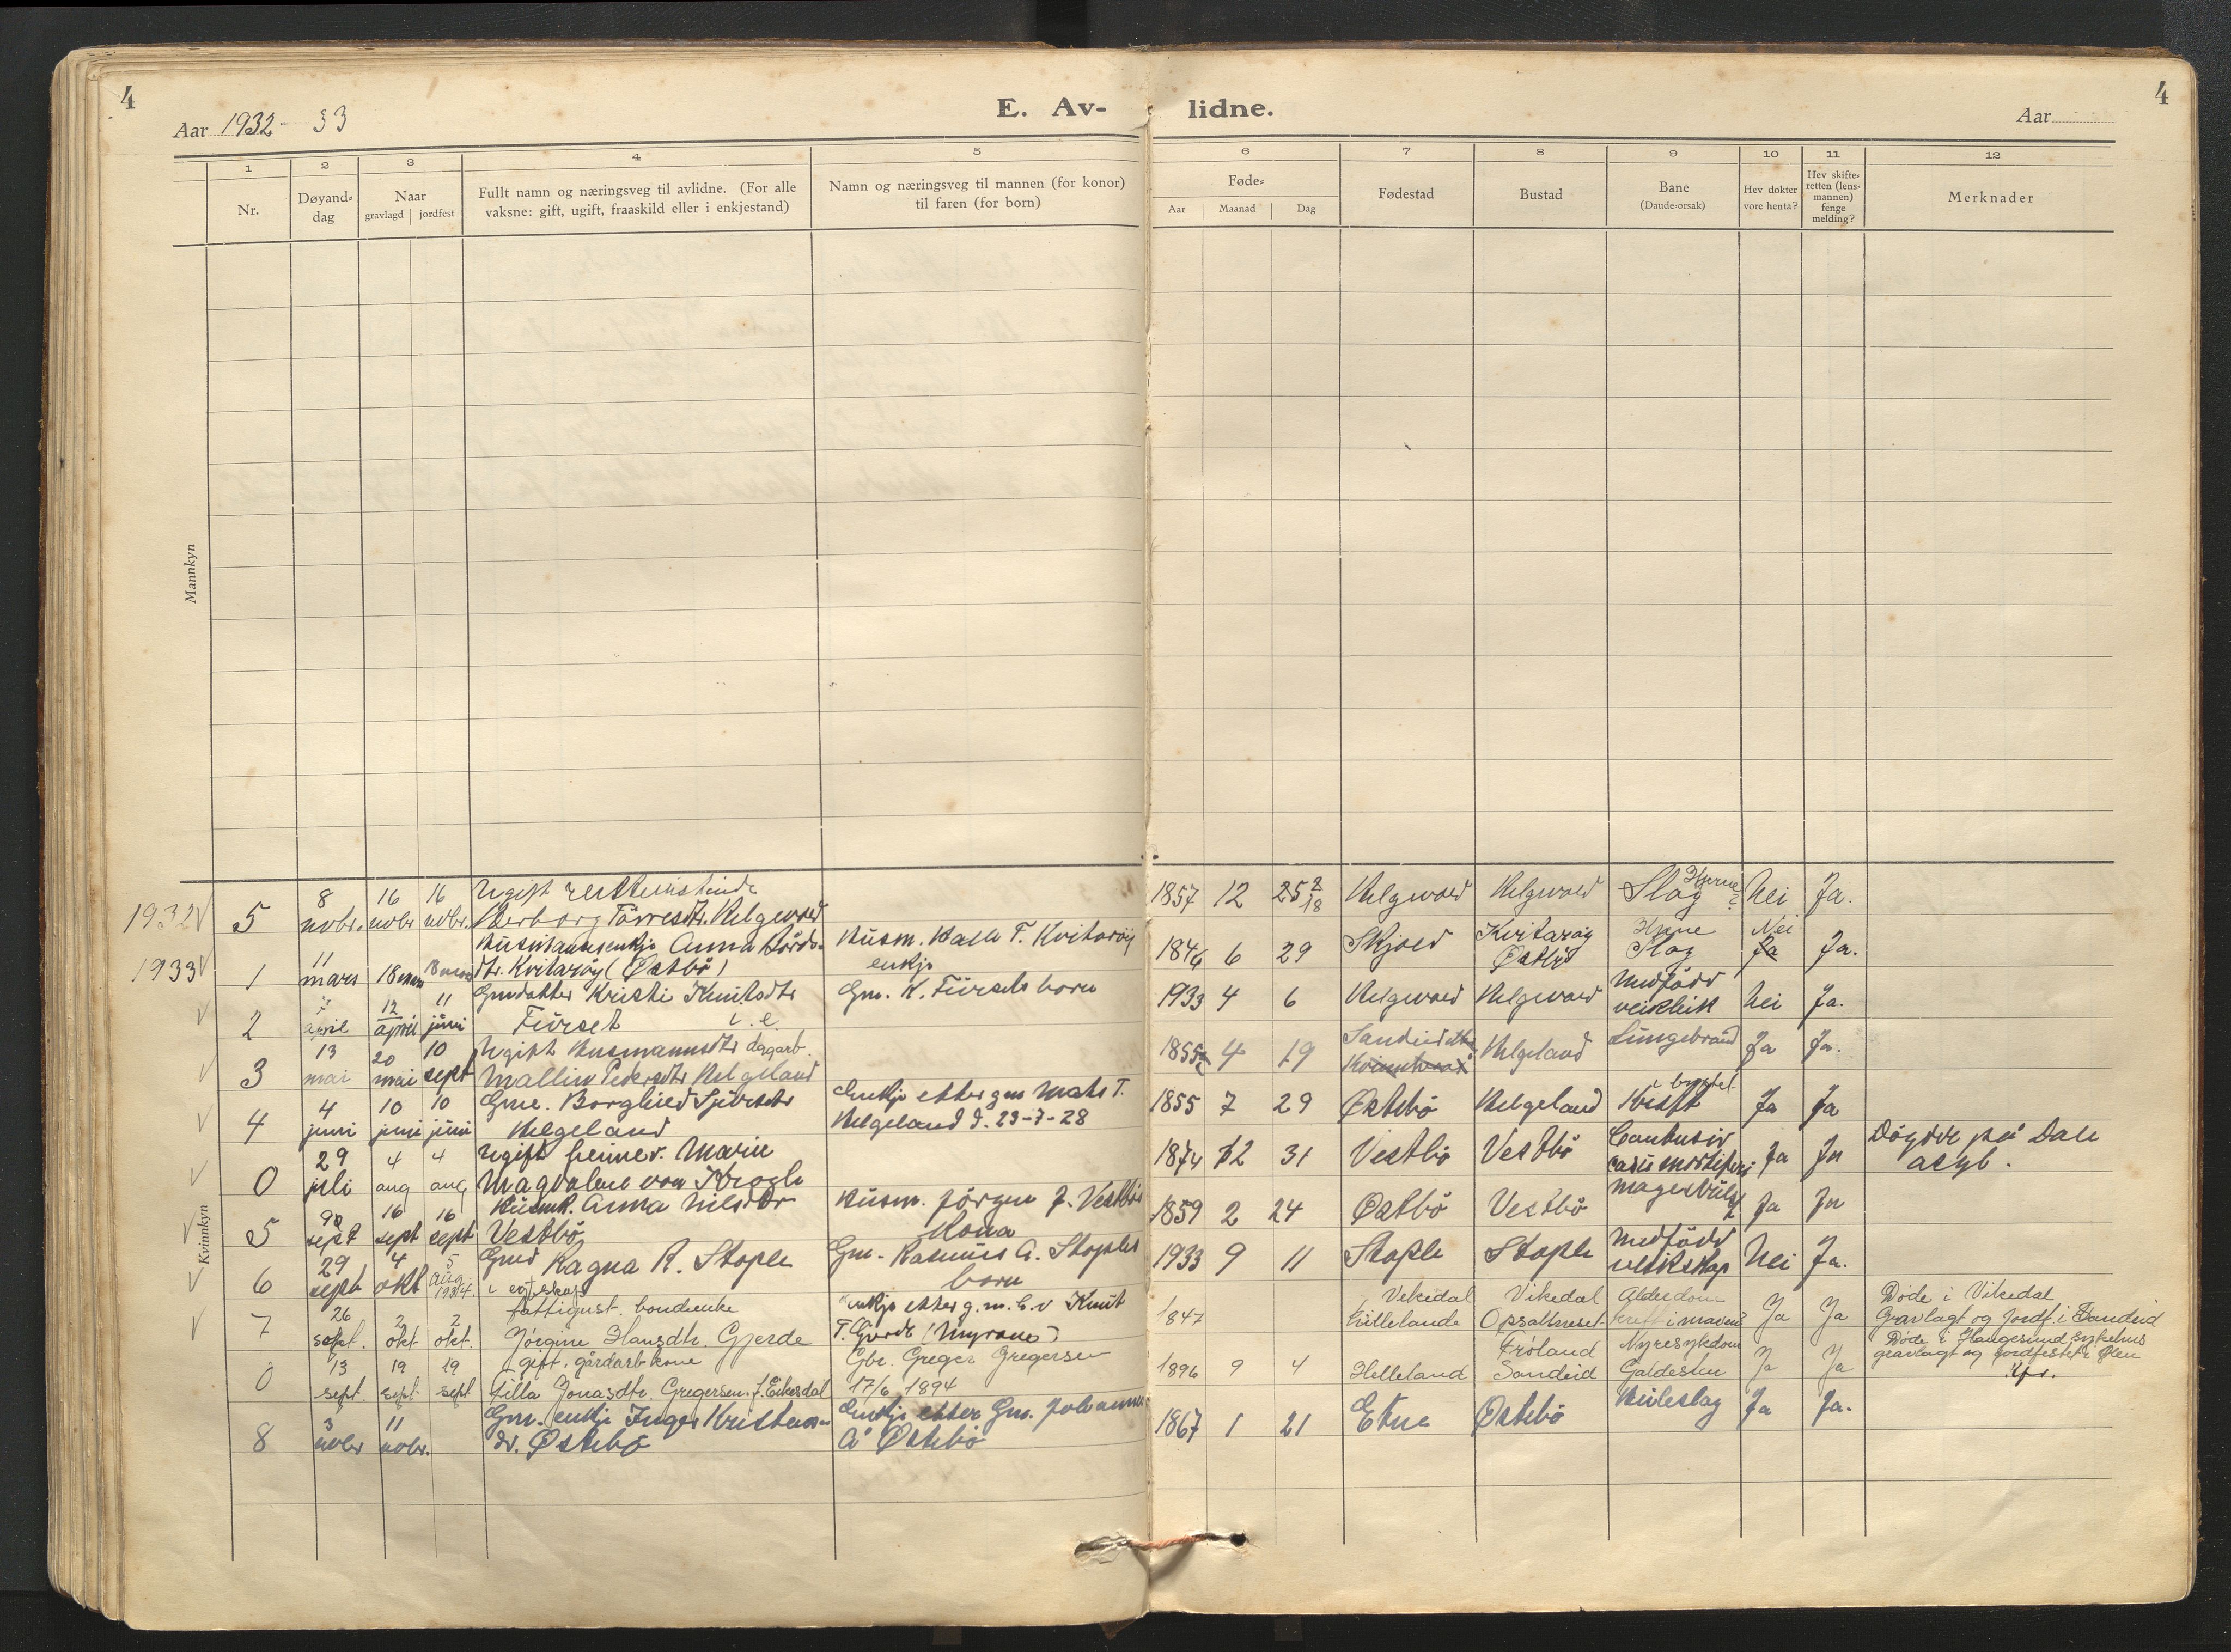 4
4
Aar 1932-33
E. Av-
lidne.
Aar
1
2
3
4
5
6
7
8
9
10
11
12
Nr.
Døyand-
dag
Naar
gravlagd | jordfest
Fullt namn og næringsveg til avlidne. (For alle
vaksne: gift, ugift, fraaskild eller i enkjestand)
Namn og næringsveg til mannen (for konor)
til faren (for born)
Føde-
Aar
Maanad
Dag
Fødestad
Bustad
Bane
(Daude-orsak)
Hev dokter
vore henta?
Hev skifte-
retten (lens-
mannen)
fenge
melding?
Merknader
Mannkyn
Kvinnkyn
1932 5 8 novbr. 16 novbr 16 novbr. Ugift
Torresdtr. Helgevold
1857 12 25 Helgevold Helgevold Slag Nei Ja.
1933 1 11 mars 18 mars 18 mars Anna
dtr. Kvitarøy (Østbø)
Husm. T. Kvitarøy
enkje
1846 6 29 Skjold Kvitarøy Østbø Slag Nei Ja Ja.
2 april 12 april 11 juni Gmdatter Kristi Knutsdtr
Fürset
Gm. K. Fürsets born
1933 4 6 Helgevold Helgevold Medfödd veikleik Nei Ja.
3 13 mai 20 mai 10 sept Ugift Husmannsdtr dagarb.
Mallin Pedersdtr Helgeland
1855 4 19 Helgeland Lungebrand Ja Ja.
4 4 juni 10 juni 10 juni Gme. Borghild
Helgeland
Enkje etter gm Mats T.
Helgeland d. 23-7-28
1855 7 29 Østebø Helgeland Kreft i brystet Ja Ja
0 29 juli 4 aug 4 aug Ugift heimev. Marie
Magdalene von Krogh
1874 12 31 Vestbø Vestbø Ja Ja Døydde på Dale
asyl.
5 9 sept 16 sept 16 sept Husmk. Anna Nilsdtr
Vestbø
Husm. Jörgen J. Vestbø
Kona
1859 2 24 Østbø Vestbø Ja Ja
6 29 sept 4 okt 5 aug 1934. Gmd Ragna R. Stople
i egteskap
Gm. Rasmus A. Stoples
born
1933 9 11 Stople Stople Medfödd veikskap Nei Ja.
7 26 sept. 2 okt 2 okt. fattigunst. bondeenke
Jörgine Hansdtr. Gjerde
Enkje etter g.m. Knut
T. Gjerde (Myrane)
1847 Vikedal Vikedal Alderdom Ja Ja Døde i Vikedal
Gravlagt og Jordf. i Sandeid
0 13 sept. 19 sept. 19 sept gift, gårdarb kone
Jonasdtr. Gregersen f. Eikesdal
Gbr. Greger Gregersen
17/6 1894
1896 9 4 Helleland Frøland Sandeid Nyresykdom Galdesten Ja Ja Døde i Haugesund sykehus
gravlagt og jordfestet i Ølen
8 3 novbr 11 novbr. Gm. enkje Inger Kristens-
dr. Østebø
Enkje etter Gm. Johannes
A Østebø
1867 1 21 Etne Østebø Ja Ja.